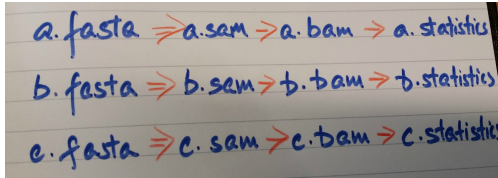 a.fasta => a.sam -> a.bam -> a.statistics
b.fasta => b.sam -> b.bam -> b.statistics
c.fasta => c.sam -> c.bam -> c.statistics